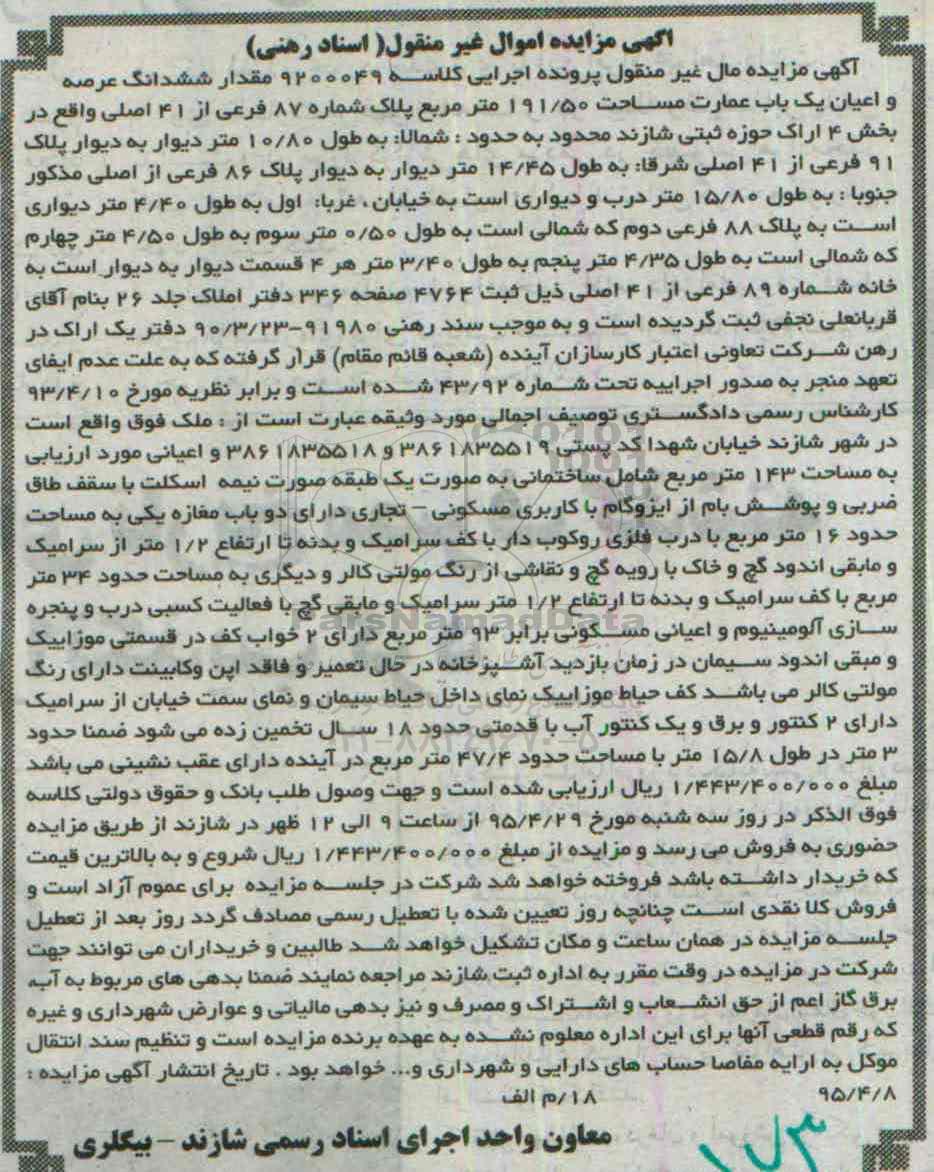 آگهی مزایده اموال غیر منقول( اسناد رهنی)
آگهی مزایده مال غیر منقول پرونده اجرایی کلاسه ۹۲۰۰۰۴۹ مقدار ششدانگ عرصه
و اعیان یک باب عمارت مساحت ۱۹۱/۵۰ متر مربع پلاک شماره ۸۷ فرعی از ۴۱ اصلی واقع در
بخش ۴ اراک حوزه ثبتی شازند محدود به حدود : شمالا: به طول ۱۰/۸۰ متر دیوار به دیوار پلاک
۹۱ فرعی از ۴۱ اصلی شرقا: به طول ۱۴/۴۵ متر دیوار به دیوار پلاک ۸۶ فرعی از اصلی مذکور
جنوبا : به طول ۱۵/۸۰ متر درب و دیواری است به خیابان ، غربا: اول به طول ۴/۴۰ متر دیواری
است به پلاک ۸۸ فرعی دوم که شمالی است به طول ۰/۵۰ متر سوم به طول ۴/۵۰ متر چهارم
که شمالی است به طول ۴/۳۵ متر پنجم به طول ۳/۴۰ متر هر ۴ قسمت دیوار به دیوار است به
خانه شماره ۸۹ فرعی از ۴۱ اصلی ذیل ثبت ۴۷۶۴ صفحه ۳۴۶ دفتر املاک جلد ۲۶ بنام آقای
قربانعلی نجفی ثبت گردیده است و به موجب سند رهنی ۹۱۹۸۰-۹۰/۳/۲۳ دفتر یک اراک در
رهن شرکت تعاونی اعتبار کارسازان آینده (شعبه قائم مقام) قرار گرفته که به علت عدم ایفای
تعهد منجر به صدور اجراییه تحت شماره ۴۳/۹۲ شده است و برابر نظریه مورخ ۹۳/۴/۱۰
کارشناس رسمی دادگستری توصیف اجمالی مورد وثیقه عبارت است از : ملک فوق واقع است
در شهر شازند خیابان شهدا کد پستی ۳۸۶۱۸۳۵۵۱۹ و ۳۸۶۱۸۳۵۵۱۸ و اعیانی مورد ارزیابی
به مساحت ۱۴۳ متر مربع شامل ساختمانی به صورت یک طبقه صورت نیمه اسکلت با سقف طاق
ضربی و پوشش بام از ایزوگام با کاربری مسکونی – تجاری دارای دو باب مغازه یکی به مساحت
حدود ۱۶ متر مربع با درب فلزی روکوب دار با کف سرامیک و بدنه تا ارتفاع ۱/۲ متر از سرامیک
و مابقی اندود گچ و خاک با رویه گچ و نقاشی از رنگ مولتی کالر و دیگری به مساحت حدود ۳۴ متر
مربع با کف سرامیک و بدنه تا ارتفاع ۱/۲ متر سرامیک و مابقی گچ با فعالیت کسبی درب و پنجره
سازی آلومینیوم و اعیانی مسکونی برابر ۹۳ متر مربع دارای ۲ خواب کف در قسمتی موزاییک
و مبقی اندود سیمان در زمان بازدید آشپزخانه در حال تعمیر و فاقد اپن وکابینت دارای رنگ
مولتی کالر می باشد کف حیاط موزاییک نمای داخل حیاط سیمان و نمای سمت خیابان از سرامیک
دارای ۲ کنتور و برق و یک کنتور آب با قدمتی حدود ۱۸ سال تخمین زده می شود ضمنا حدود
۳ متر در طول ۱۵/۸ متر با مساحت حدود ۴۷/۴ متر مربع در آینده دارای عقب نشینی می باشد
مبلغ ۱/۴۴۳/۴۰۰/۰۰۰ ریال ارزیابی شده است و جهت وصول طلب بانک و حقوق دولتی کلاسه
فوق الذکر در روز سه شنبه مورخ ۹۵/۴/۲۹ از ساعت ۹ الی ۱۲ ظهر در شازند از طریق مزایده
حضوری به فروش می رسد و مزایده از مبلغ ۱/۴۴۳/۴۰۰/۰۰۰ ریال شروع و به بالاترین قیمت
که خریدار داشته باشد فروخته خواهد شد شرکت در جلسه مزایده برای عموم آزاد است و
فروش کلا نقدی است چنانچه روز تعیین شده با تعطیل رسمی مصادف گردد روز بعد از تعطیل
جلسه مزایده در همان ساعت و مکان تشکیل خواهد شد طالبین و خریداران می توانند جهت
شرکت در مزایده در وقت مقرر به اداره ثبت شازند مراجعه نمایند ضمنا بدهی های مربوط به آب،
برق گاز اعم از حق انشعاب و اشتراک و مصرف و نیز بدهی مالیاتی و عوارض شهرداری و غیره
که رقم قطعی آنها برای این اداره معلوم نشده به عهده برنده مزایده است و تنظیم سند انتقال
موکل به ارایه مفاصا حساب های دارایی و شهرداری و... خواهد بود . تاریخ انتشار آگهی مزایده :
۹۵/۴/۸ ۱۸/م الف
معاون واحد اجرای اسناد رسمی شازند – بیگلری
ParsNamadData